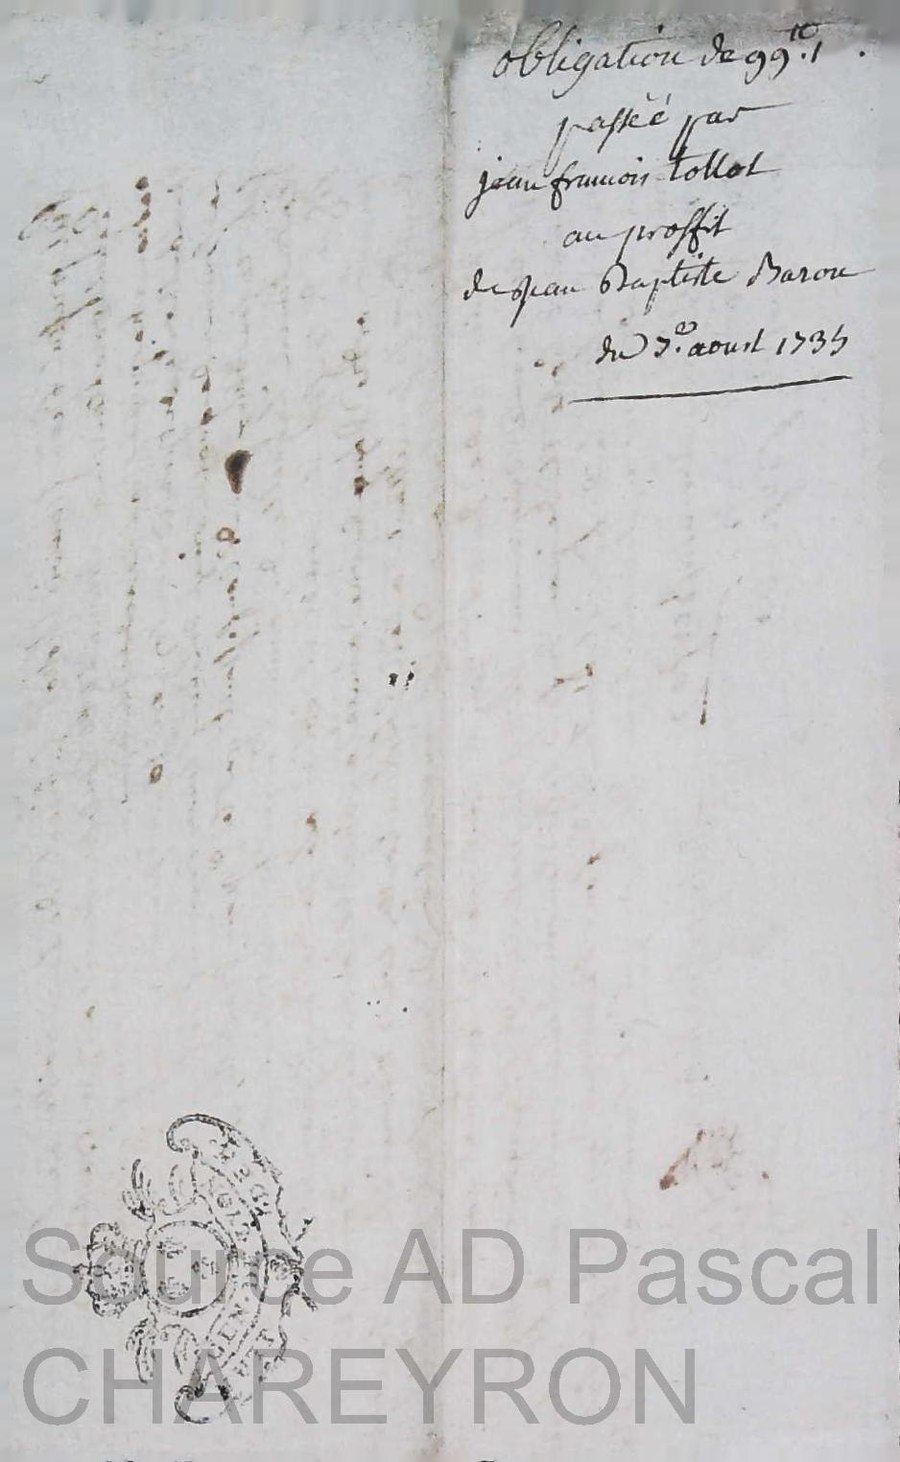 obligation de 99.tt 1 .
passeé par
jean francois tollot
au proffit
de Jean Baptiste Baron
du 7.e aoust 1735
Source AD Pascal
CHAREYRON